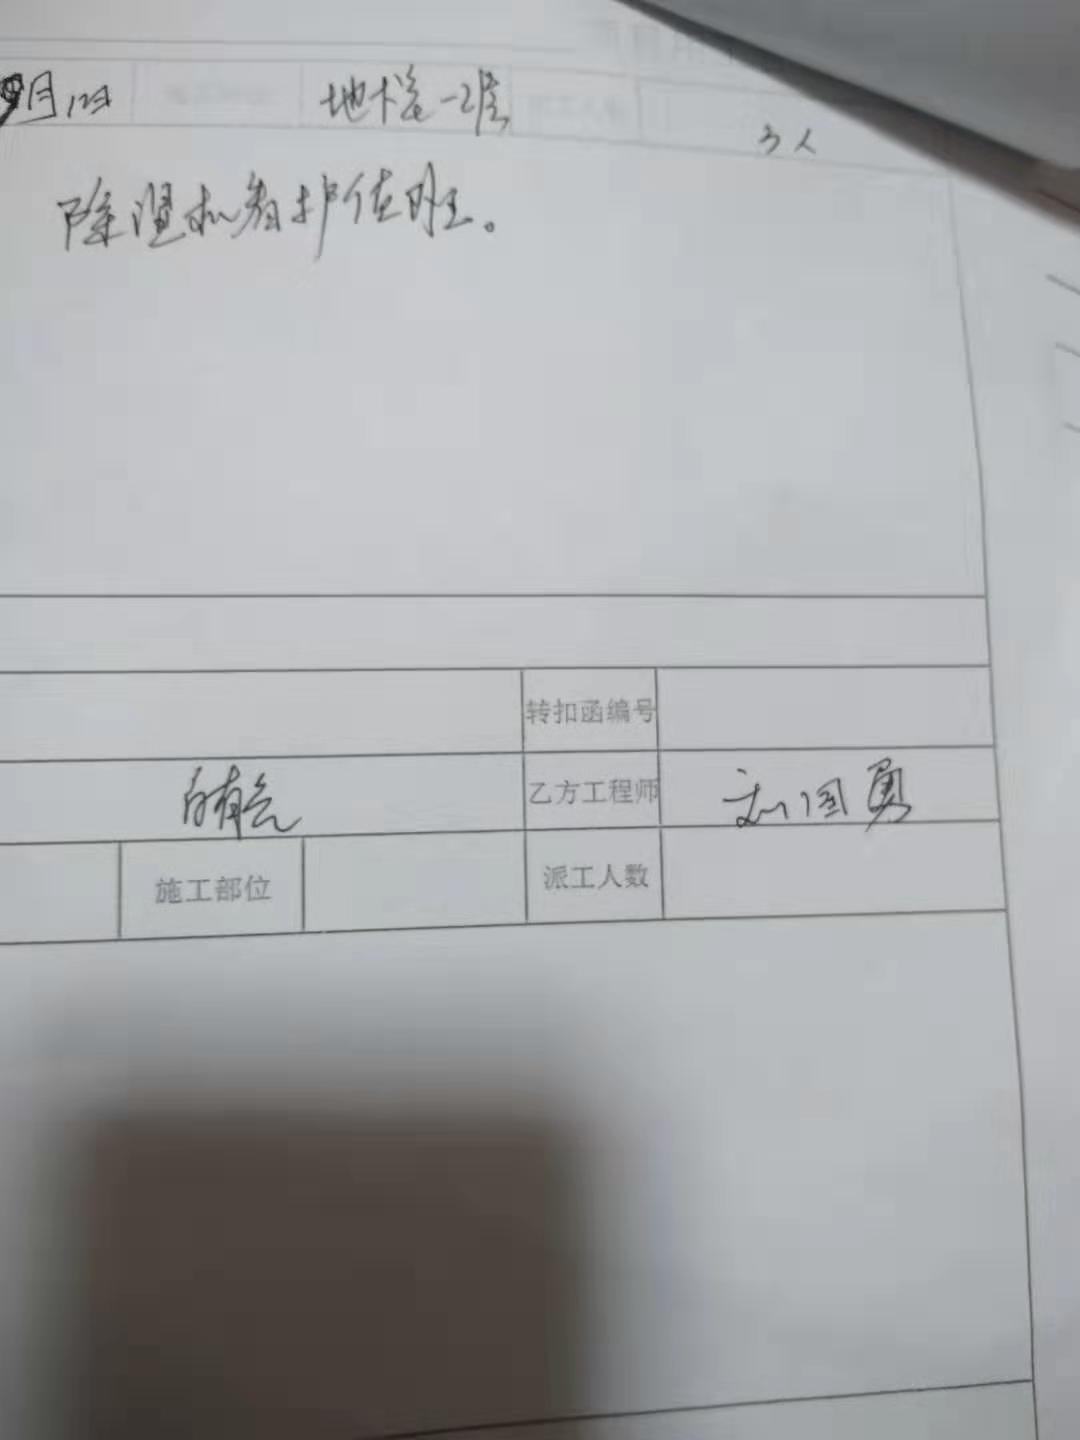 9月12日 地塔一2层 3人
除湿机看护值班。
转扣函编号
乙方工程师 刘国勇
施工部位 派工人数